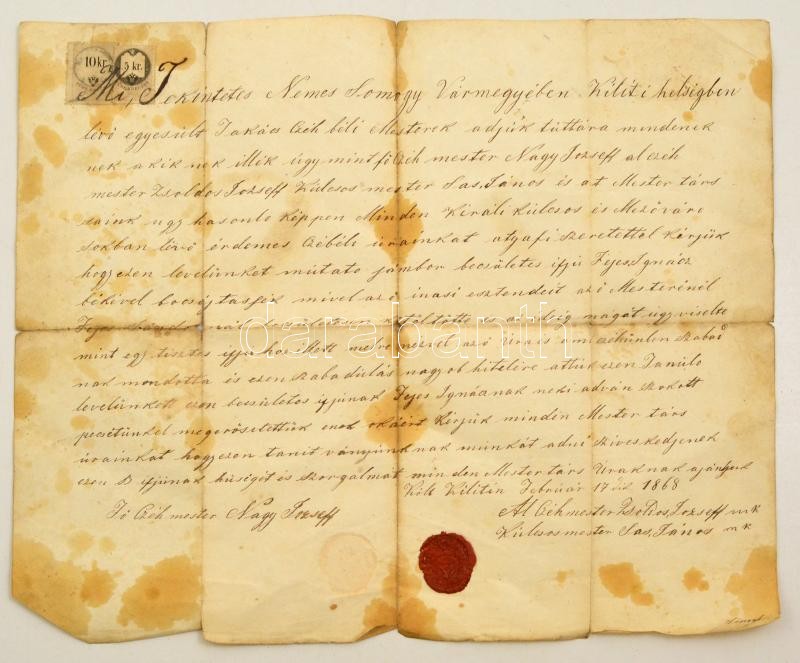 10 kr. 5 kr.
Mi, Tekintetes Nemes Somogy Vármegyében Kiliti helsigben
lévő egyesült Takács Czéh béli Mesterek adjuk tuttára mindenek
nek akiknek illik úgymint fő Czéh mester Nagy Jozseff al czéh
mester Zsoldos Jozseff Külcsos mester Sas, János és at Mester társ
saink ugy hasonlo képpen Minden Királi külcsos és Mezőváro
sokban lévő érdemes Czébéli urainkat atyafi szeretettel kérjük
hogy ezen levelünket mútato jámbor becsületes ifjú Fejes, Ignácz
békével bocsájtassék mivel az ő inasi esztendeit az ő Mesterinél
Fejes nál becsületesen kitöltötte és addig magát ugy viselte
mint egy tisztes ifju hoz illett melyre nézvel az ő Urais emi czéhünlen szabad
nak mondotta és ezen szabadulás nagyob hitelire attuk ezen Tanulo
levelünkett ezen becsületes ifjúnak Fejes Ignácnak neki adván szokott
pecsétünkel megerősítettük okáért kérjük minden Mester társ
úrainkat hogy ezen tanitványúnknak múnkát adni sziveskedjenek
ezen B ifjúnak hűségit és szorgalmát minden Mester társ Uraknak ajánljuk
Költ Kilitin Február 17 1868
Fő Czéh mester Nagy Jozseff
Al Czéhmester Zsoldos, Jozseff mk
Külcsos mester Sas, János mk
darabanth